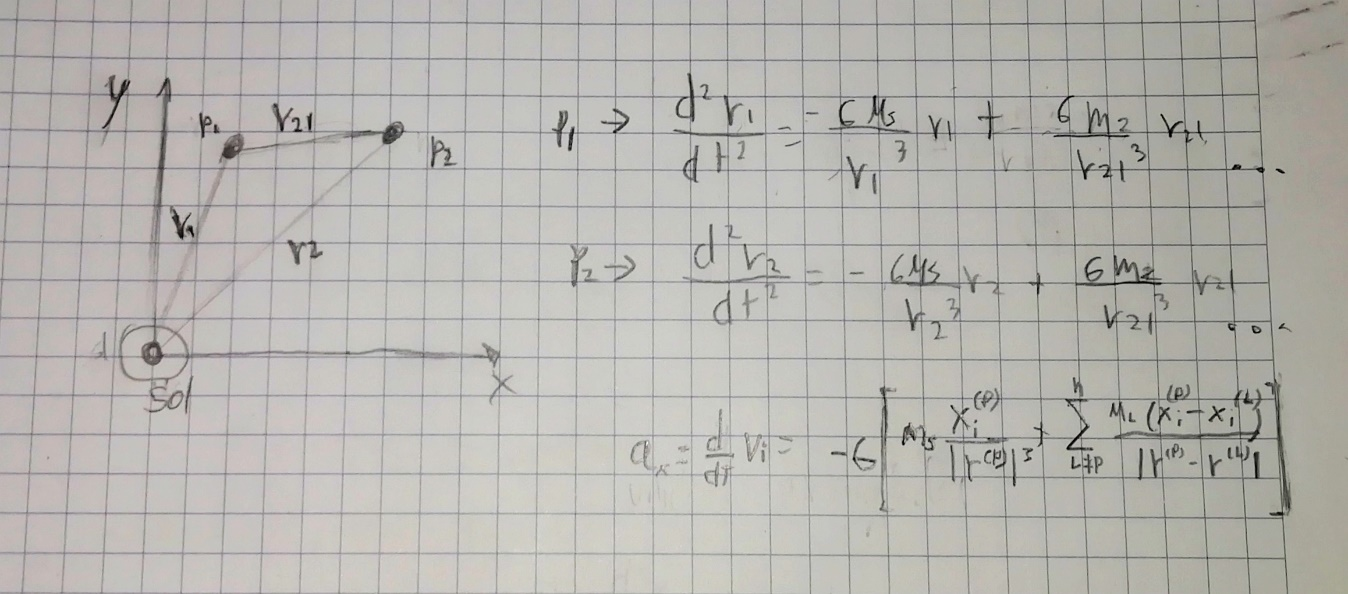 y
p₁ r₂₁ p₂
r₁ r₂
Sol x
p₁ → d²r₁/dt² = - G Ms/r₁³ r₁ + G m₂/r₂₁³ r₂₁ ...
p₂ → d²r₂/dt² = - G Ms/r₂³ r₂ + G m₂/r₂₁³ r₂₁ ...
aₓ = d/dt Vᵢ = -G [ Ms xᵢ⁽ᵖ⁾/|r⁽ᵖ⁾|³ + Σ_{L≠p}^{n} M_L (xᵢ⁽ᵖ⁾ - xᵢ⁽ᴸ⁾)/|r⁽ᵖ⁾ - r⁽ᴸ⁾| ]